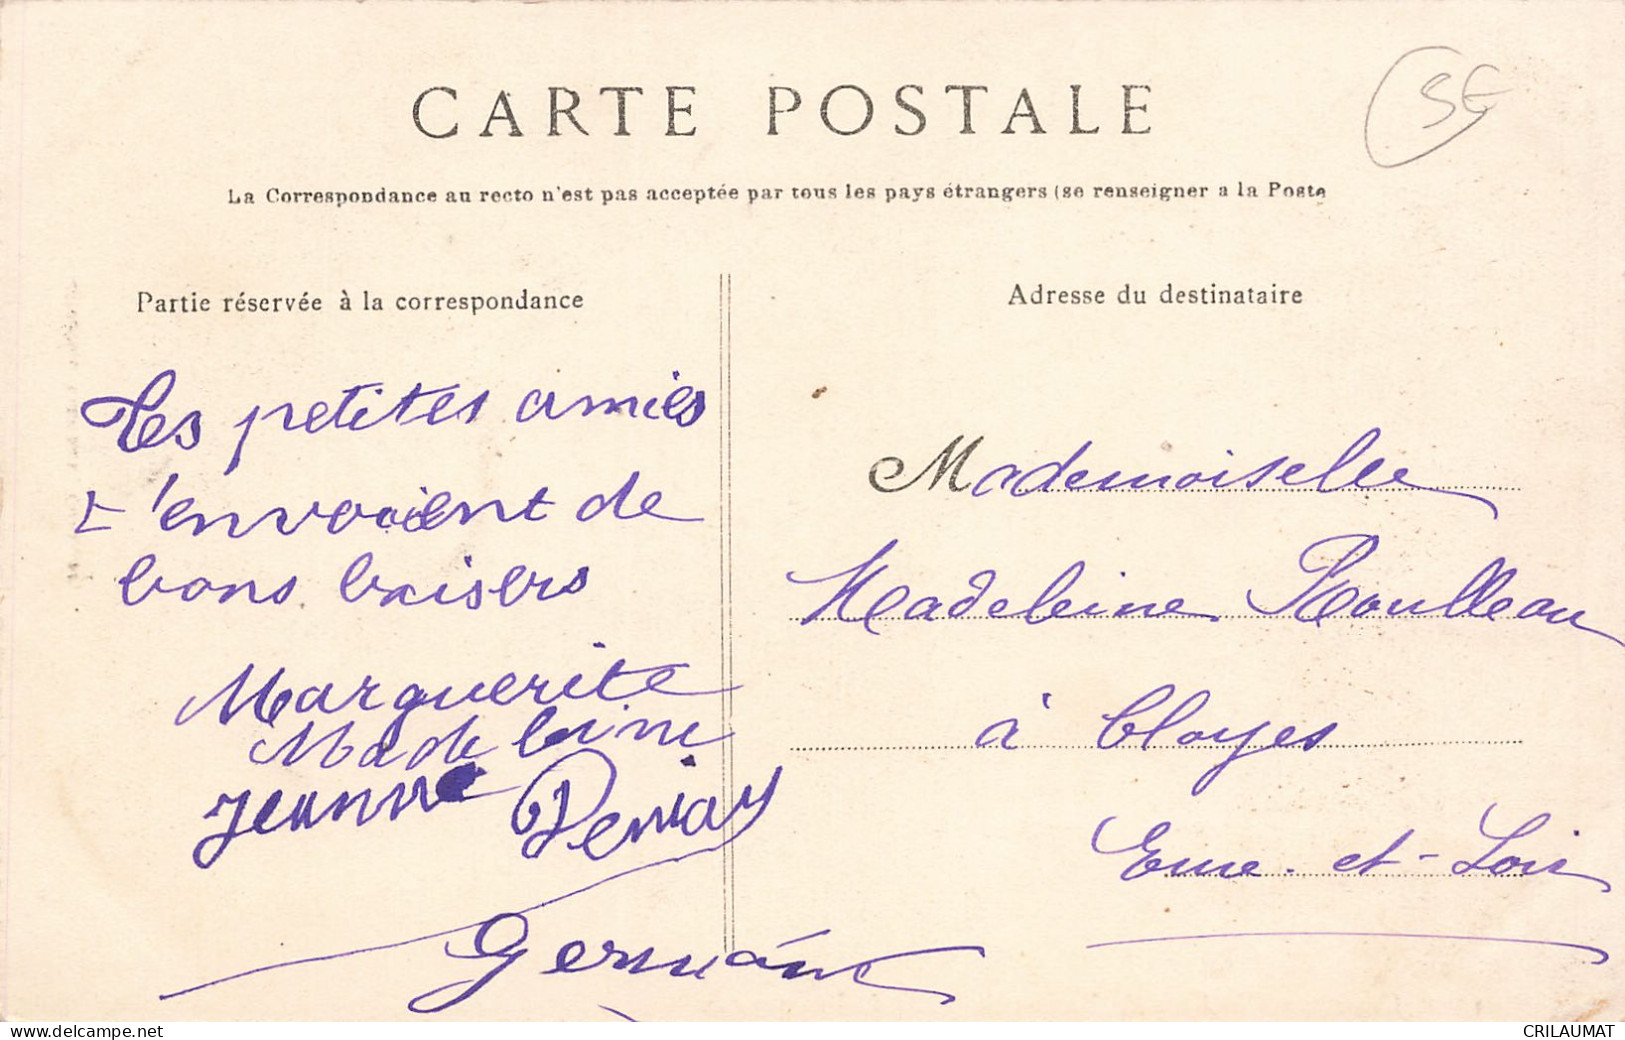 CARTE POSTALE
La Correspondance au recto n'est pas acceptée par tous les pays étrangers (se renseigner a la Poste
Partie réservée à la correspondance
Tes petites amies
t'envoient de
bons baisers
Marguerite
Madeleine
Jeanne
Germaine
Adresse du destinataire
Mademoiselle
Madeleine Roulleau
à Cloyes
Eure-et-Loir
www.delcampe.net
CRILAUMAT